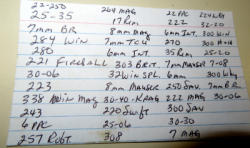 22-250 264 MAG 22 PPC 224 Wby
25-35 17 Rem 222 32-20
7mm BR 8mm MAG 6mm INT. 300 WIN
264 WIN 7mm TCU 270 300 H+H
280 6mm INT. 35 Rem 25-20
221 FIREBALL 303 BRIT. 7mm MAUSER 7-08
30-06 32 WIN SPL. 6mm 300 Wby
223 8mm MAUSER 250 SAV. 7mm BR
338 WIN MAG 30-40-KRAG 222 MAG 30-06
243 220 Swift 300 SAV
6 PPC 25-06 30-30
257 Robt. 308 7 MAG